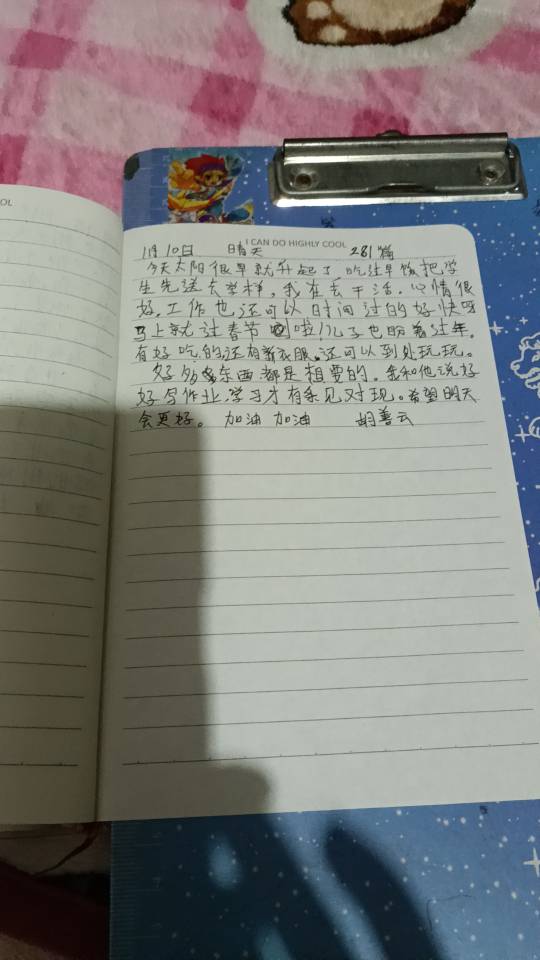 OL
I CAN DO HIGHLY COOL
1月10日 晴天 281篇
今天太阳很早就升起了,吃过早饭把学
生先送去学样,我在去干活。心情很
好,工作也还可以时间过的好快呀
马上就过春节啦!儿子也盼着过年,
有好吃的还有新衣服。还可以到处玩玩。
好多东西都是想要的,我和他说好
好写作业,学习才有条见对现。希望明天
会更好。加油 加油 胡善云